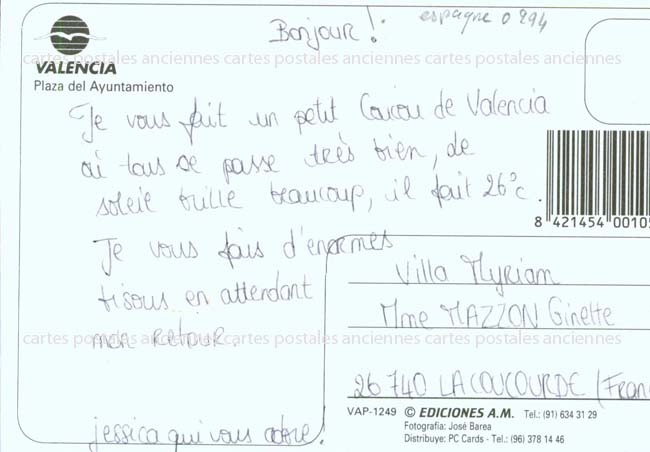 Bonjour !
espagne 0294
cartes postales anciennes cartes postales anciennes cartes postales anciennes
VALENCIA
Plaza del Ayuntamiento
Je vous fait un petit Coucou de Valencia
où tous se passe très bien, de
soleil brille beaucoup, il fait 26°c.
8 421454 00105
Je vous fais d'enormes
bisous en attendant
mon retour
Villa Myriam
Mme MAZZON Ginette
cartes postales anciennes cartes postales anciennes cartes postales anciennes
26740 LA COUCOURDE (Fran
jessica qui vous adore !
VAP-1249 © EDICIONES A.M. Tel.: (91) 634 31 29
Fotografía: José Barea
Distribuye: PC Cards - Tel.: (96) 378 14 46